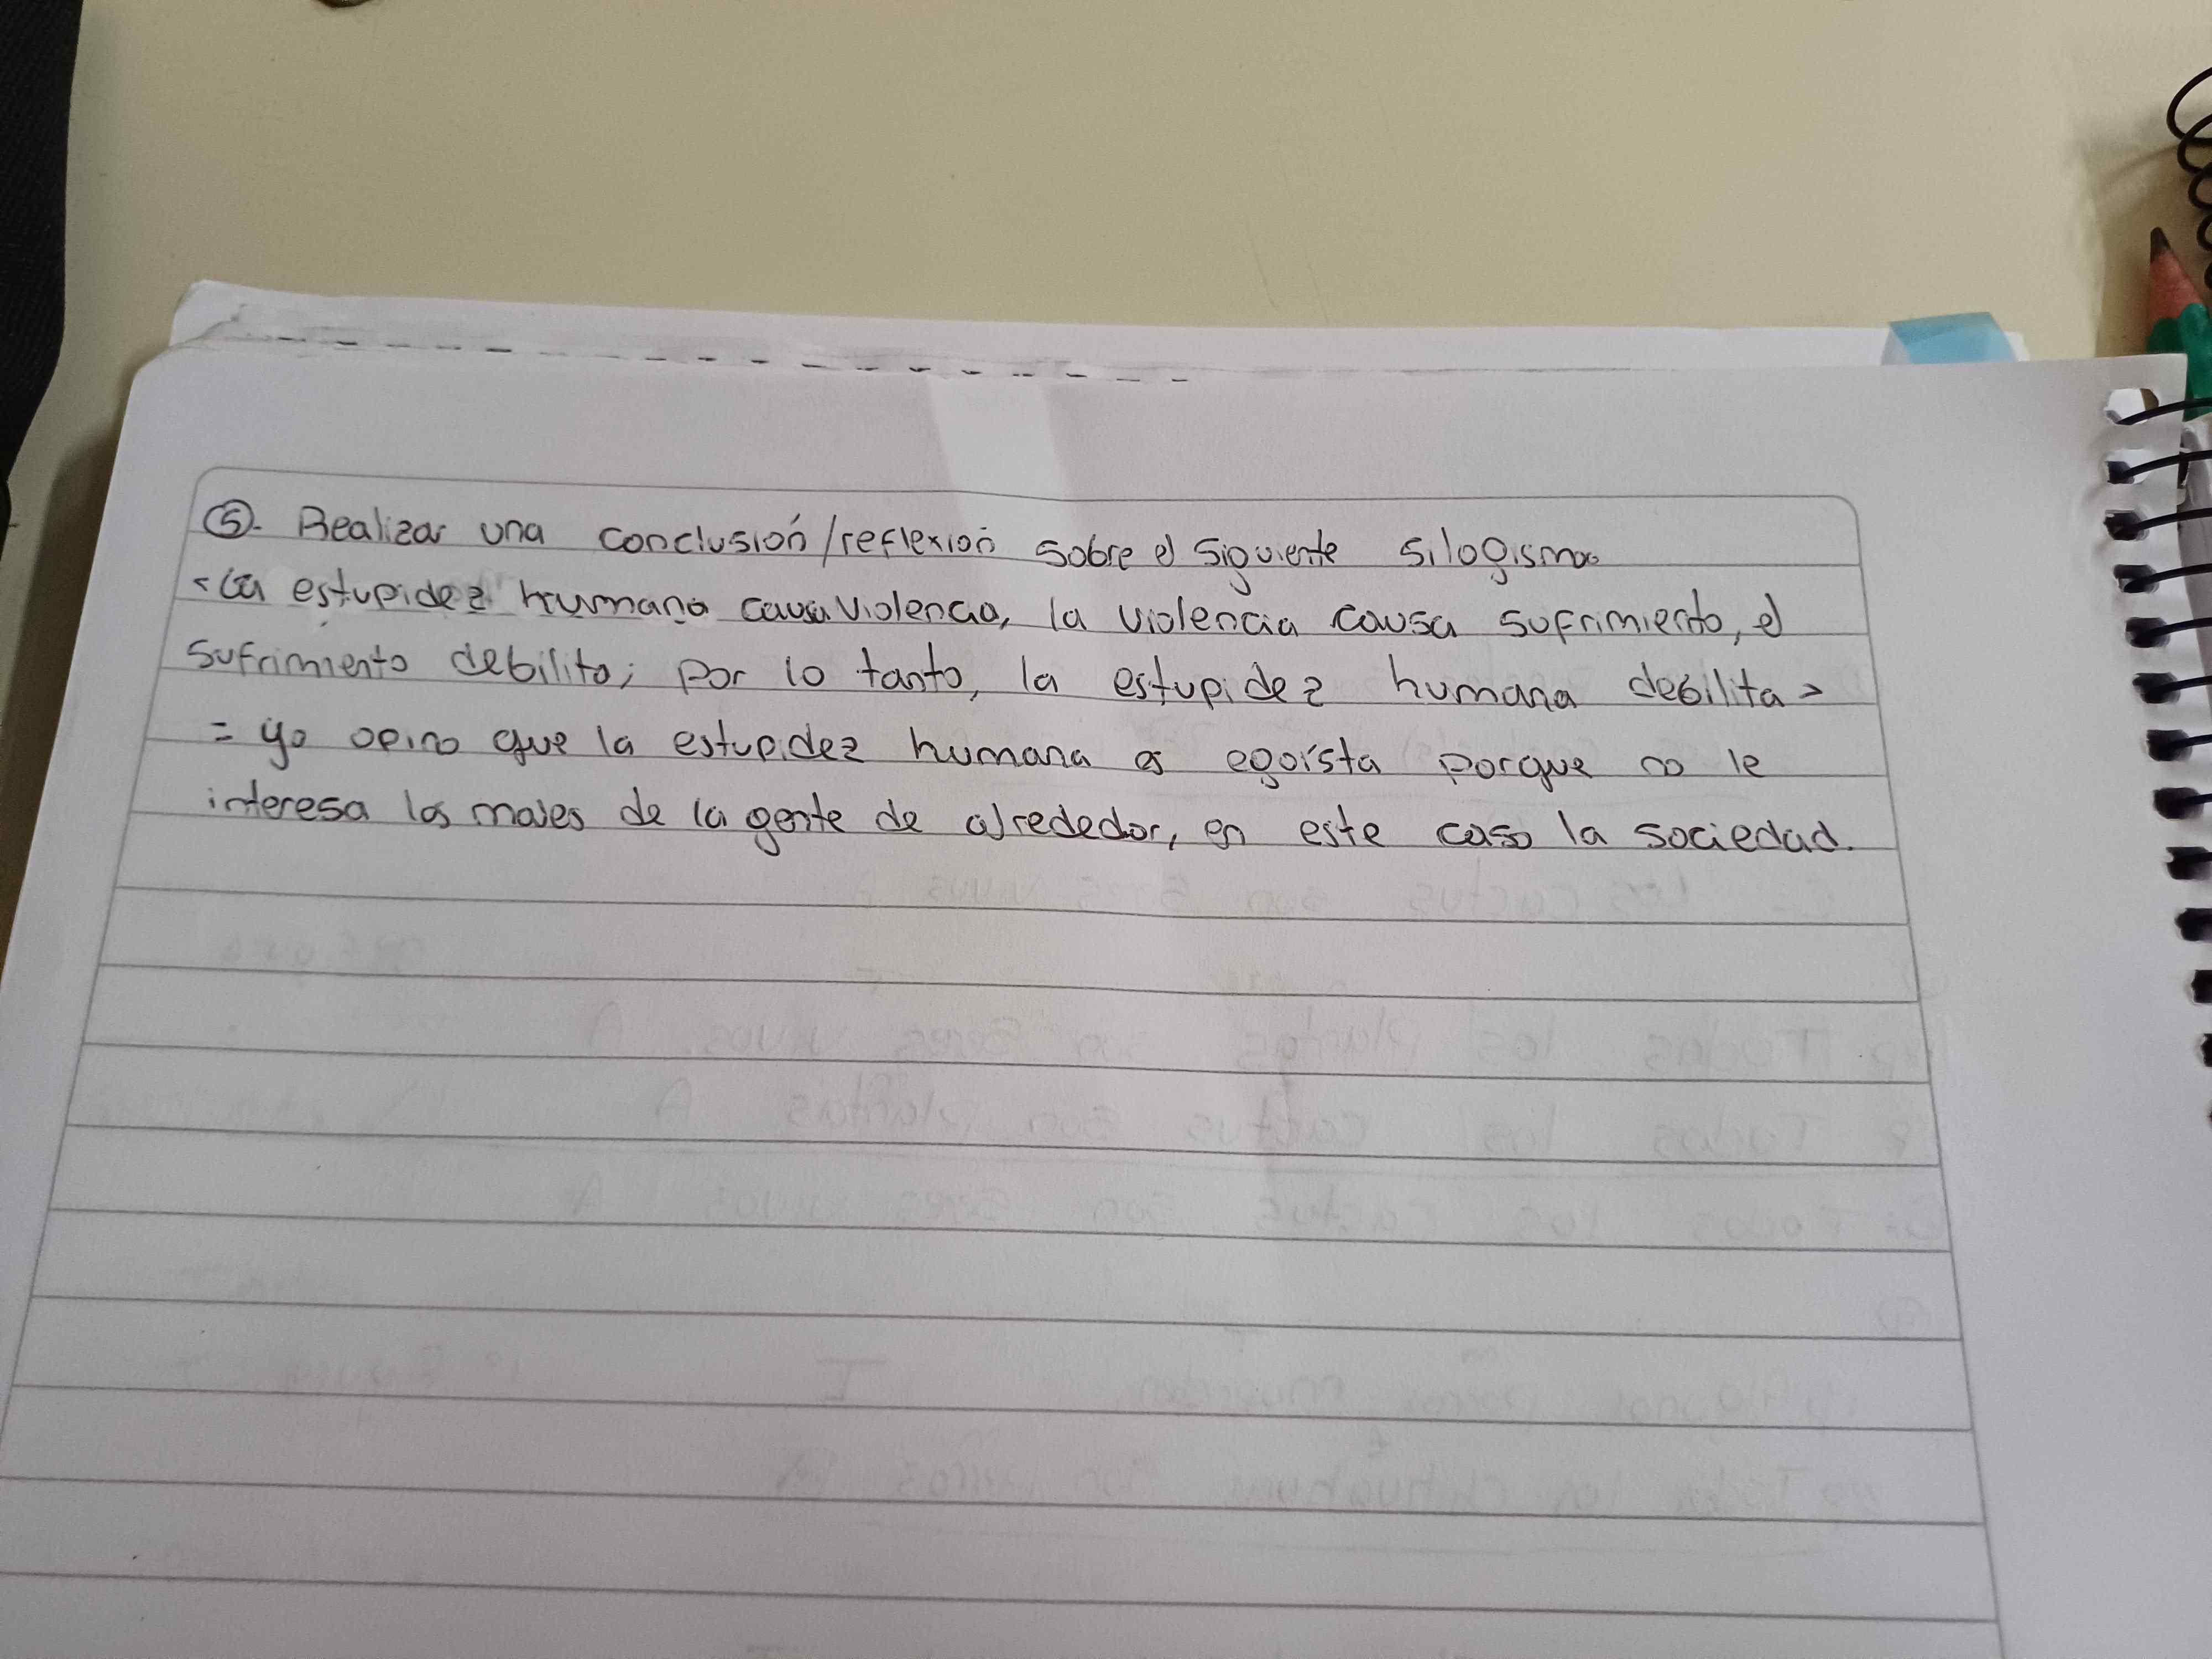 ⑤- Realizar una conclusión/reflexión sobre el siguiente silogismo
<La estupidez humana causa violencia, la violencia causa sufrimiento, el
sufrimiento debilita; por lo tanto, la estupidez humana debilita>
= yo opino que la estupidez humana es egoísta porque no le
interesa los males de la gente de alrededor, en este caso la sociedad.